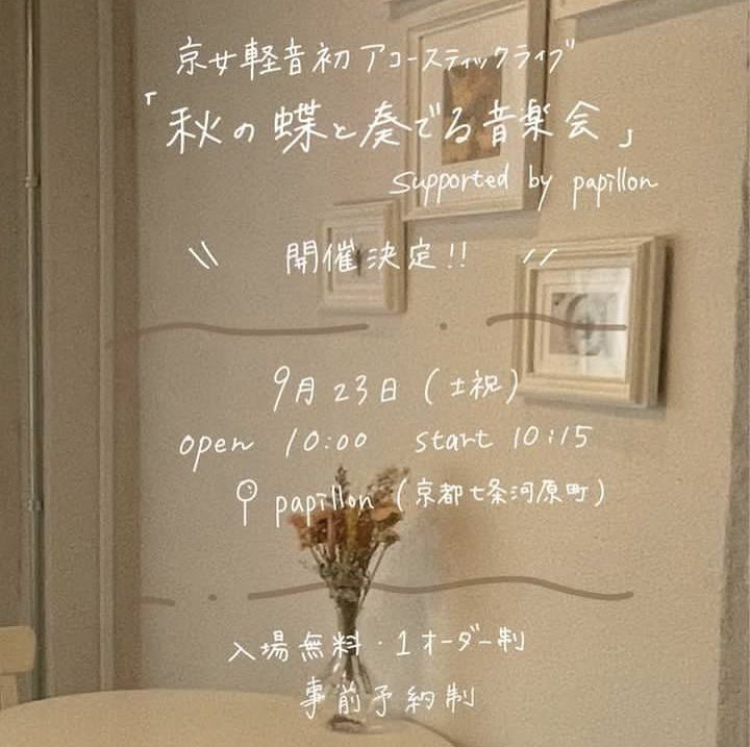 京女軽音初アコースティックライブ
「秋の蝶と奏でる音楽会」
supported by papillon
\\ 開催決定!! //
9月23日(土祝)
open 10:00 start 10:15
papillon (京都七条河原町)
入場無料・1オーダー制
事前予約制